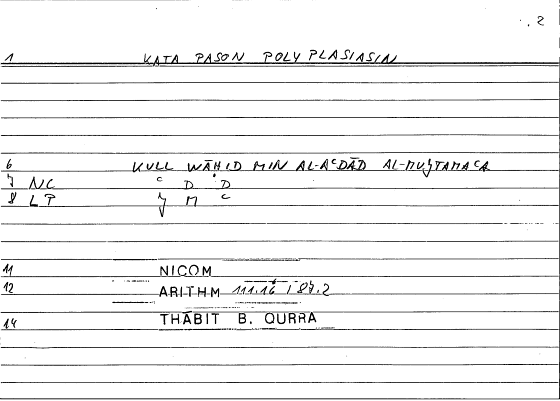 . , 2
1 KATA PASON POLYPLASIASIN
6 KULL WĀḤID MIN AL-AᶜDĀD AL-MUǦTAMAᶜA
7 NC ᶜ D D
8 LP Ǧ M ᶜ
11 NICOM
12 ARITHM 111.16 / 87.2
14 THĀBIT B. QURRA